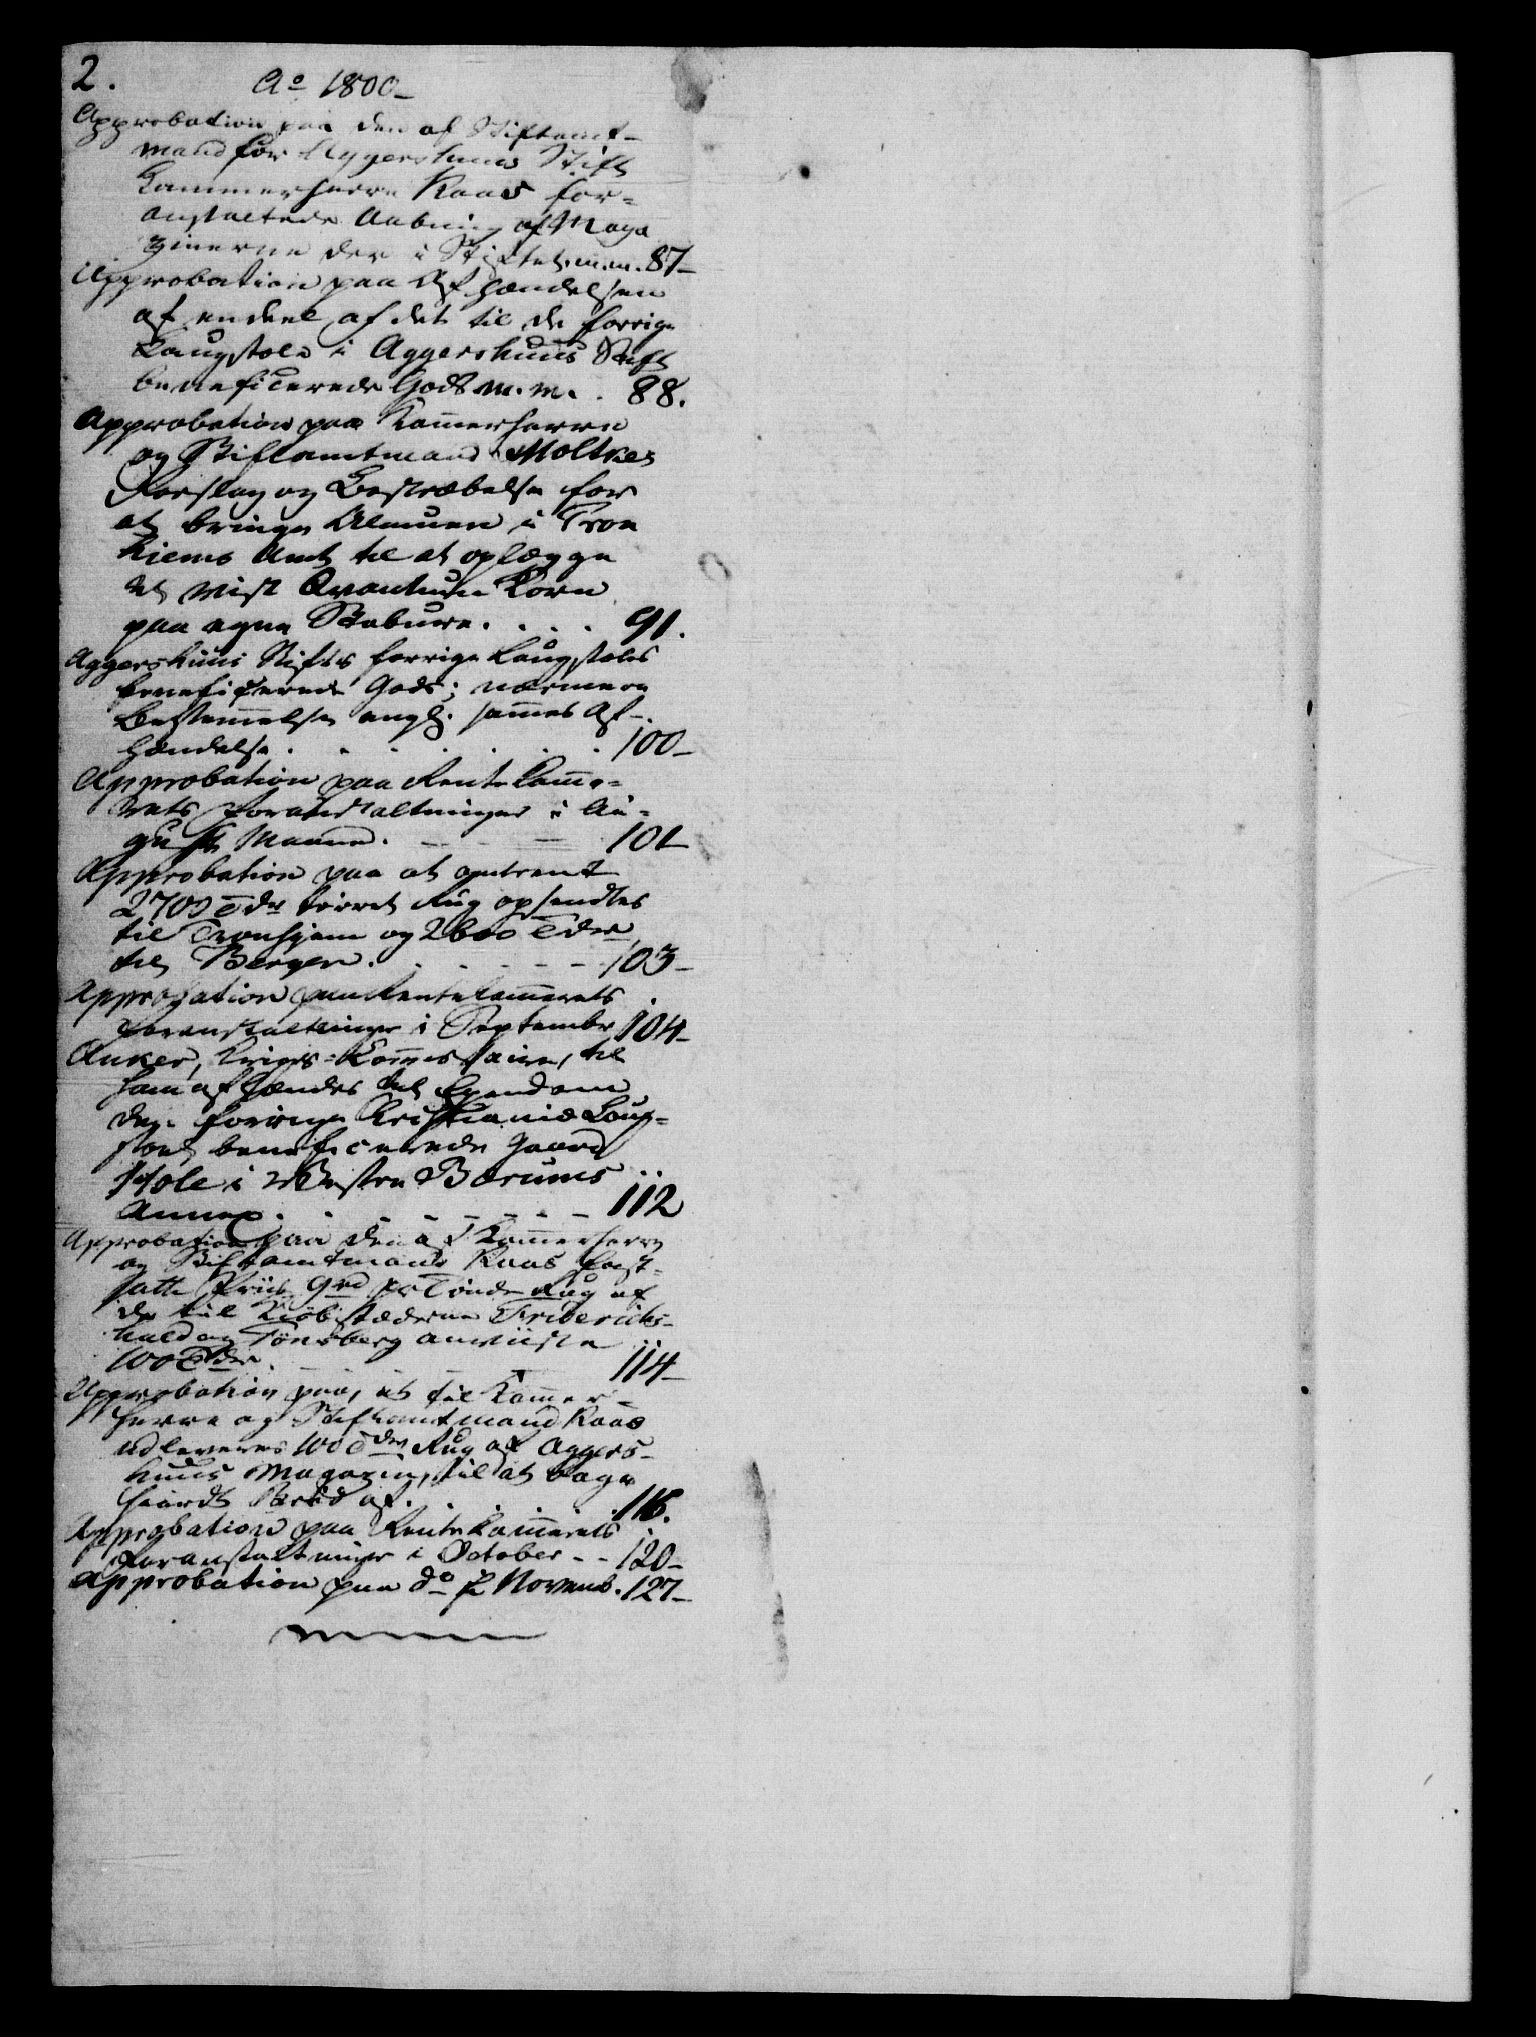 2.
Ao 1800
Approbation paa den af Stiftamt-
mand for Aggershuus Stift
Kammerherre Kaas for-
anstaltede Aabning af Maga
zinerne der i Stiftet m.m. 87
Approbation paa Afhændelsen
af endeel af det til de forrige
Laugstole i Aggershuus Stift
beneficerede Gods m. m. . 88.
Approbation paa Kam̅erherre
og Stiftamtmand Moltkes
Forslag og Bestræbelse for
at bringe Almuen i Tron
hiems Amt til at oplægge
et vist Qvantum Korn
paa egne Stabure. . . . 91.
Aggershuus Stifts forrige Laugstoles
beneficerede Gods; nærmere
Bestem̅else angl. sam̅es Af-
hændelse . . . . . . . 100
Approbation paa Rentekam̅e-
rets Foranstaltninger i Au-
gusti Maaned. 101
Approbation paa at omtrent
2700 Tdr tørret Rug opsendtes
til Tronhjem og 2600 Tdr
til Bergen. 103
Approbation paa Rentekam̅erets
Foranstaltninger i Septembr 104
Anker, Krigs-Kom̅issaire, til
ham afhændes det Ejendom
den forrige Christiania Laug-
stoel beneficerede Gaard
Hole i Vestre Bærums
Annex. 112
Approbation paa den af Kam̅erherre
og Stiftamtmand Kaas fast-
satte Priis 9rd pr Tønde Rug af
de til Kiøbstæderne Friderichs-
hald og Tønsberg anviiste
100 Tdr. 114
Approbation paa, at til Kam̅er-
herre og Stiftamtmand Kaas
udleveres 100 Tdr Rug af Aggers-
huus Magazin, til at bage
haardt Brød af. 116.
Approbation paa Rentekam̅erets
Foranstaltninger i October - - 120
Approbation paa do f Novemb. 127